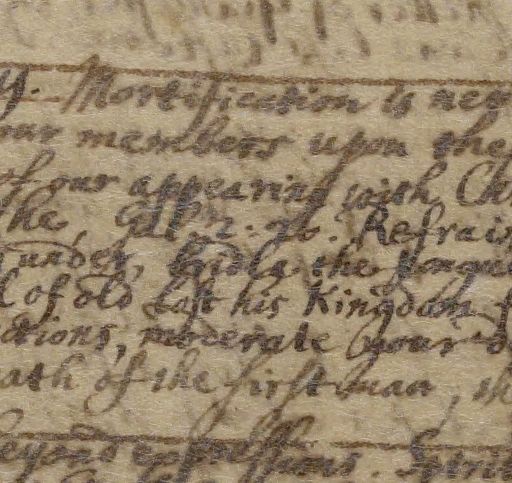 y. Mortification is nec
our members upon the
of our appearing with Ch
the
Refrain
under, bridle the tongue
of old lost his Kingdom
ctions, moderate your
ath of the first man, th
beyond expressions.